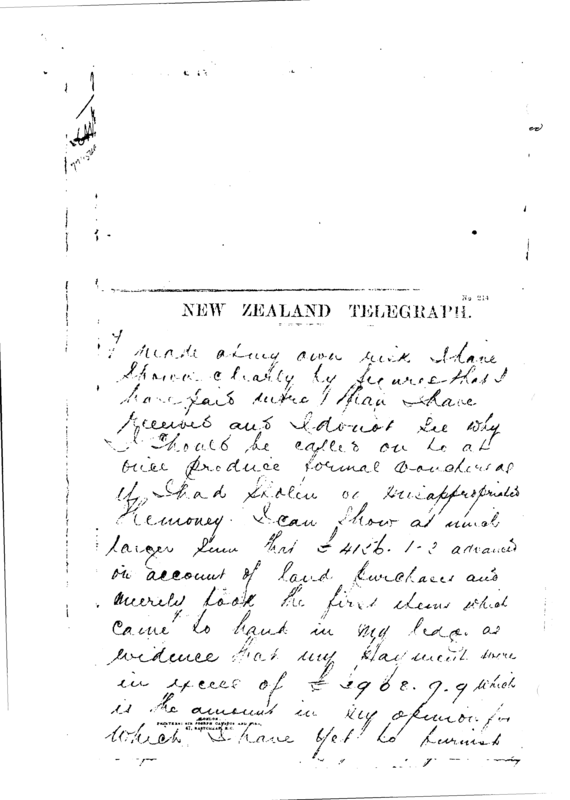 No. 214
NEW ZEALAND TELEGRAPH.
made at my own risk I have
shown clearly by figures that I
have paid more than I have
received and I do not see why
I should be called on to at
once produce formal vouchers as
if I had stolen or misappropriated
the money. I can show a much
larger sum than £4156.1-3 advanced
on account of land purchases and
merely took the first items which
came to hand in my ledger as
evidence that my payments were
in excess of £ 3968.9.9 which
is the amount in my opinion for
which I have yet to furnish